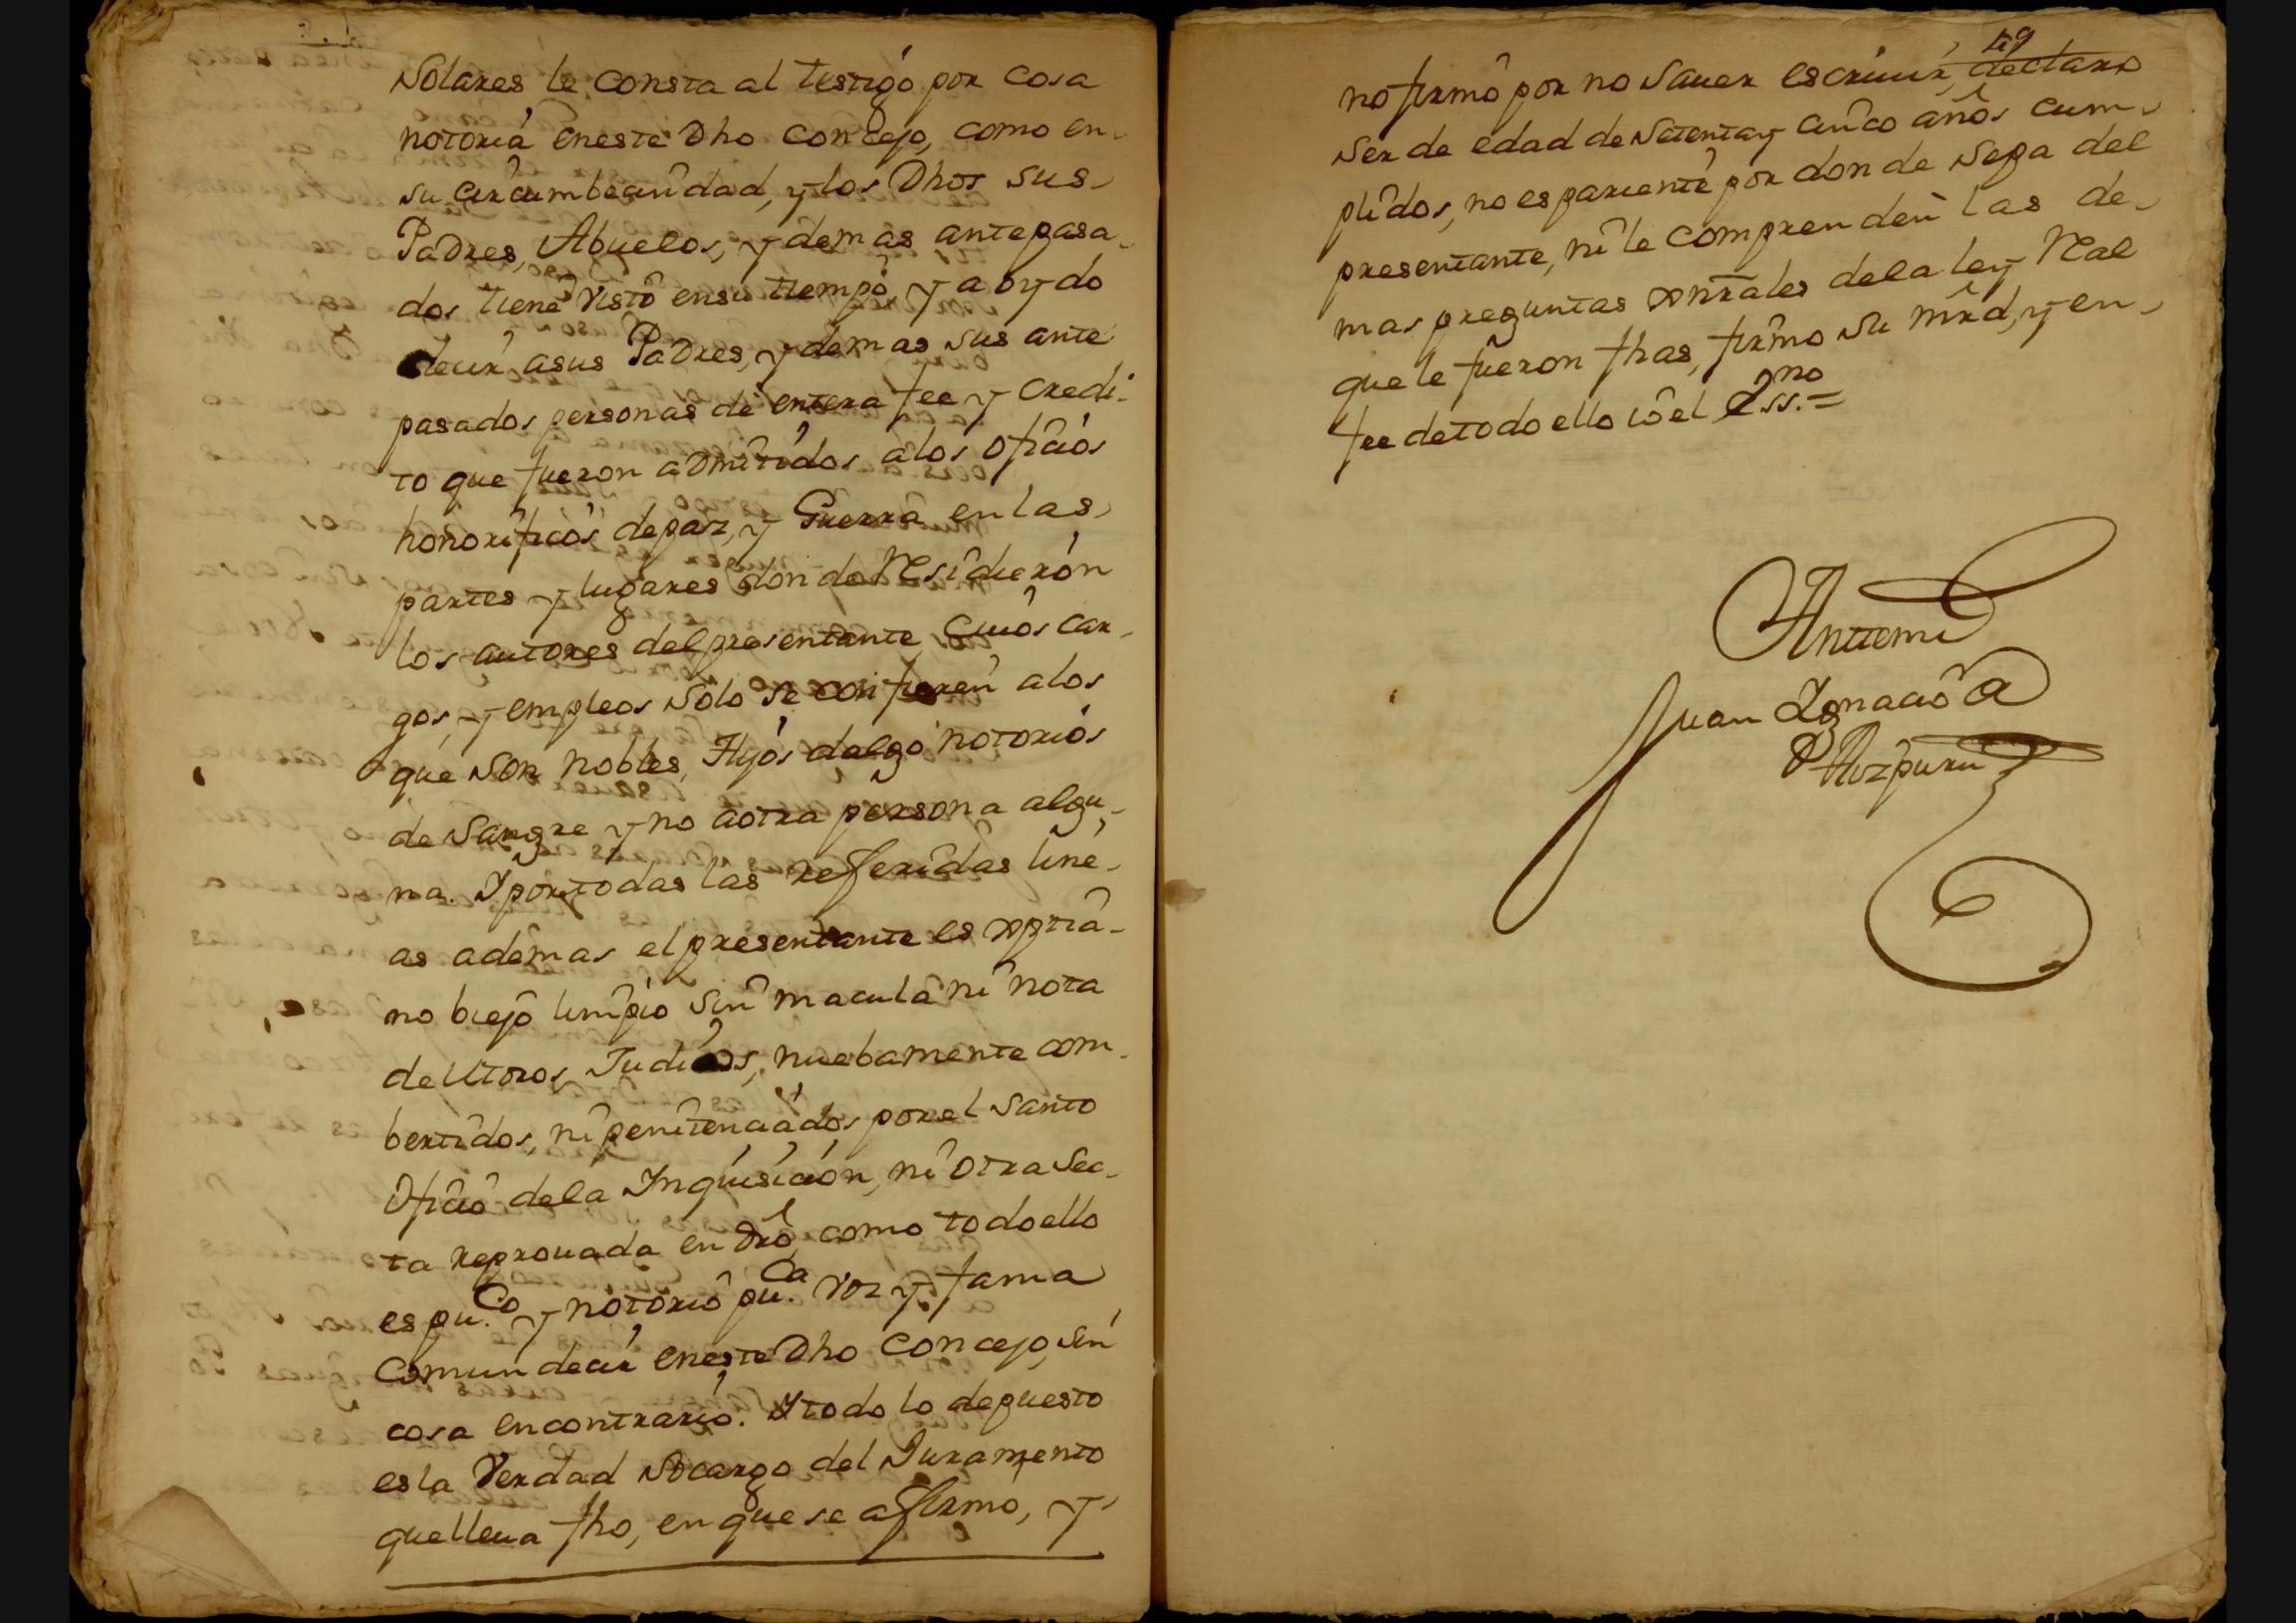 Solares le consta al testigo por cosa
notoria en este Dho Concejo, como en
su circumbecindad, y los Dhos sus
Padres, Abuelos, y demas antepasa-
dos tiene visto en su tiempo y a oydo
decir a sus Padres, y demas sus ante
pasados personas de entera fee y credi-
to que fueron admitidos a los oficios
honorificos de paz, y Guerra en las
partes y lugares donde Residieron
los autores del presentante Cuios car-
gos, y empleos solo se confieren a los
que son nobles, Hijos dalgo notorios
de Sangre y no a otra persona algu-
na. Y por todas las refferidas line-
as ademas el presentante es xptia-
no biejo limpio sin macula ni nota
de Moros, Judios, nuebamente com-
bertidos, ni penitenciados por el Santo
Oficio de la Inquisicion, ni otra Sec-
ta reprouada en dro, como todo ello
es pu.co y notorio pu.ca voz y fama
Comun decir en este Dho Concejo, sin
cosa en contrario. Y todo lo depuesto
es la Verdad so cargo del Juramento
que lleua fho, en que se affirmo, y
49
no firmo por no sauer escriuir, declaro
ser de edad de setenta y cinco años cum-
plidos, no es pariente por donde sepa del
presentante, ni le comprenden las de-
mas preguntas xnrales de la ley Real
que le fueron fhas, firmo su mrd, y en
fee de todo ello io el Ess.no =
Anttemi
Juan Ignacio a
Aozpuru